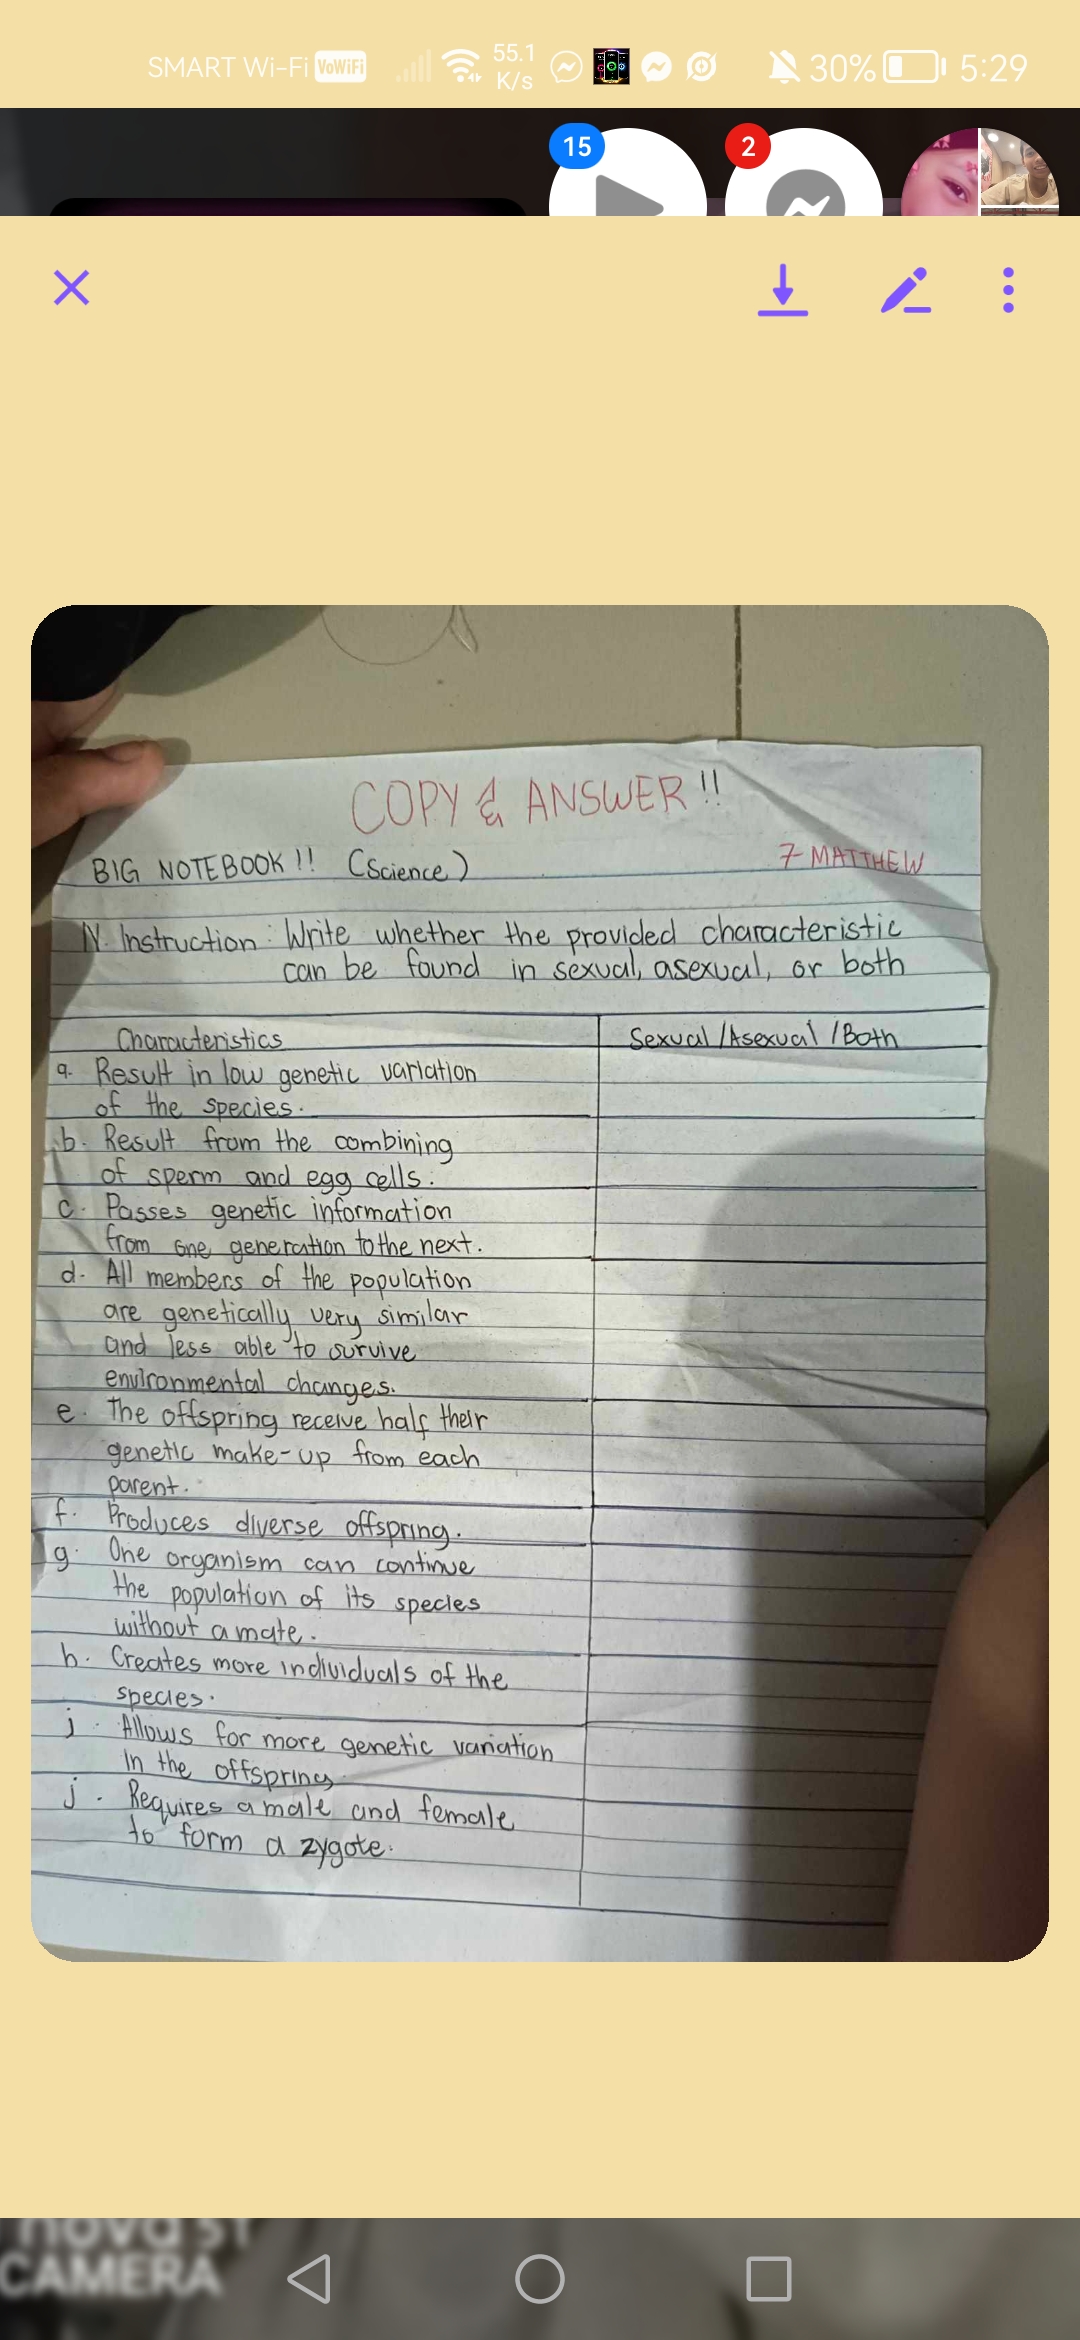 SMART Wi-Fi VoWiFi 55.1 K/s 30% 5:29
15 2
COPY & ANSWER !!
BIG NOTEBOOK !! (Science) 7-MATTHEW
IV. Instruction : Write whether the provided characteristic
can be found in sexual, asexual, or both
Characteristics Sexual /Asexual /Both
a. Result in low genetic variation
of the species.
b. Result from the combining
of sperm and egg cells.
c. Passes genetic information
from one generation to the next.
d. All members of the population
are genetically very similar
and less able to survive
environmental changes.
e. The offspring receive half their
genetic make-up from each
parent.
f. Produces diverse offspring.
g. One organism can continue
the population of its species
without a mate.
h. Creates more individuals of the
species.
j. Allows for more genetic variation
in the offspring
j. Requires a male and female
to form a zygote.
nova 5T
CAMERA